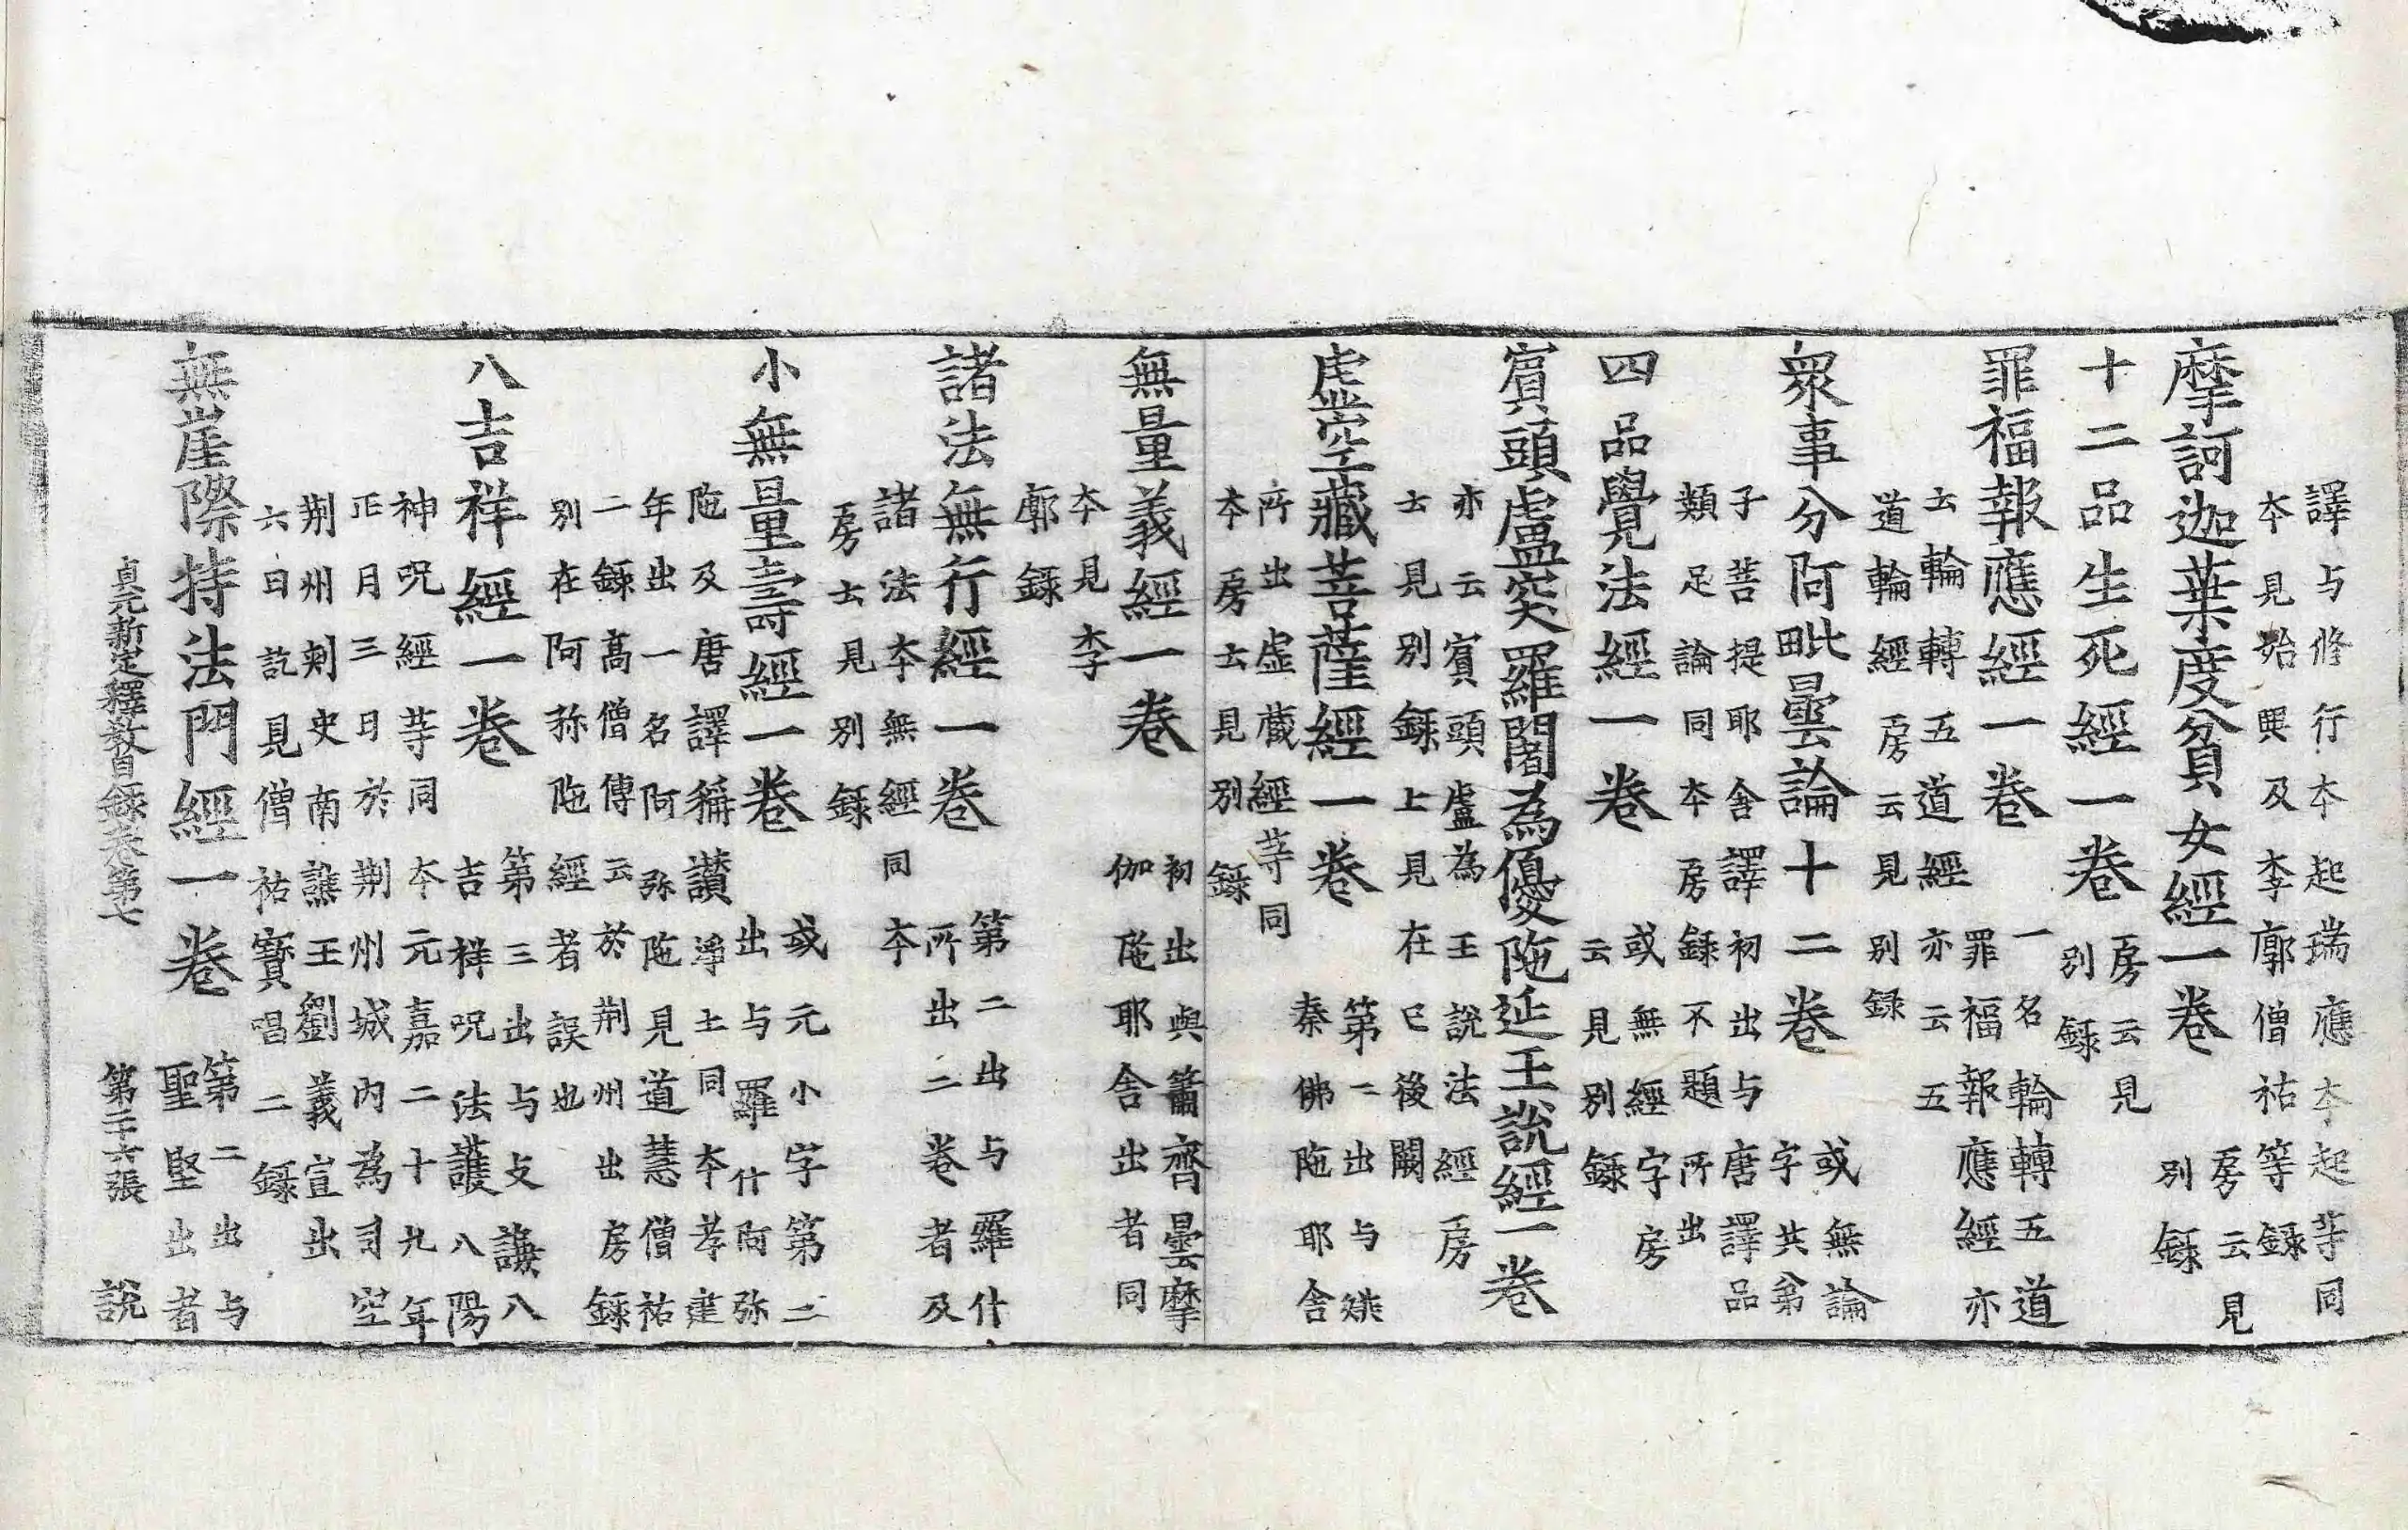 譯与修行夲起瑞應夲起䓁同
夲見始興及李廓僧祐等錄
摩訶迦葉度貧女經一卷 房云見
別錄
十二品生死經一卷 房云見
別錄
罪福報應經一卷 一名輪轉五道
罪福報應經亦
云輪轉五道經亦云五
道輪經房云見別録
衆事分阿毗曇論十二卷 或無論
字共㳟
子菩提耶舍譯初出与唐譯品
類足論同夲房録不題所出
四品覺法經一卷 或無經字房
云見別錄
賓頭盧突羅闍為優陁延王說經一卷
亦云賓頭盧為王說法經房
云見別錄上見在已後闕
虛空藏菩薩經一卷 第二出与㷼
秦佛陁耶舍
所出虛藏經䓁同
夲房云見別錄
無量義經一卷 初出與蕭齊曇摩
伽陁耶舍出者同
夲見李
廓錄
諸法無行經一卷 第二出与羅什
所出二卷者及
諸法夲無經同夲
房云見別錄
小無量壽經一卷 或元小字第二
出与羅什阿弥
陁及唐譯稱讃淨土同夲孝建
年出一名阿弥陁見道慧僧祐
二錄高僧傳云於荆州出房錄
別在阿弥陁經者誤也
八吉祥經一卷 第三出与支謙八
吉祥呪法護八陽
神呪經䓁同夲元嘉二十九年
正月三日於荆州城内為司空
荆州刺史南譙王劉義宣出
六日訖見僧祐寶唱二錄
無崖際持法門經一卷 第二出与
聖堅出者
貞元新定釋教目錄卷第七 第二十六張 說